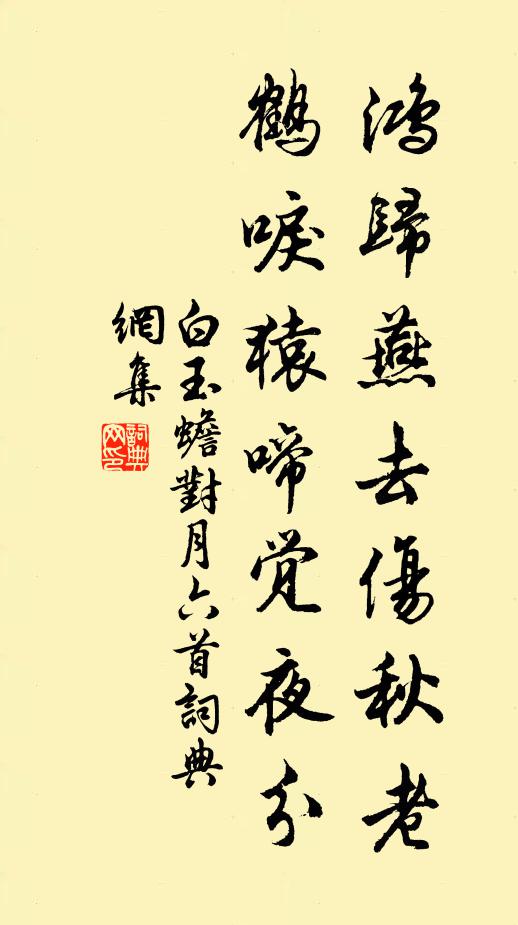 鴻歸燕去傷秋老
鶴唳猿啼覺夜分
白玉蟾對月六首詞典
網集
詞典
文印